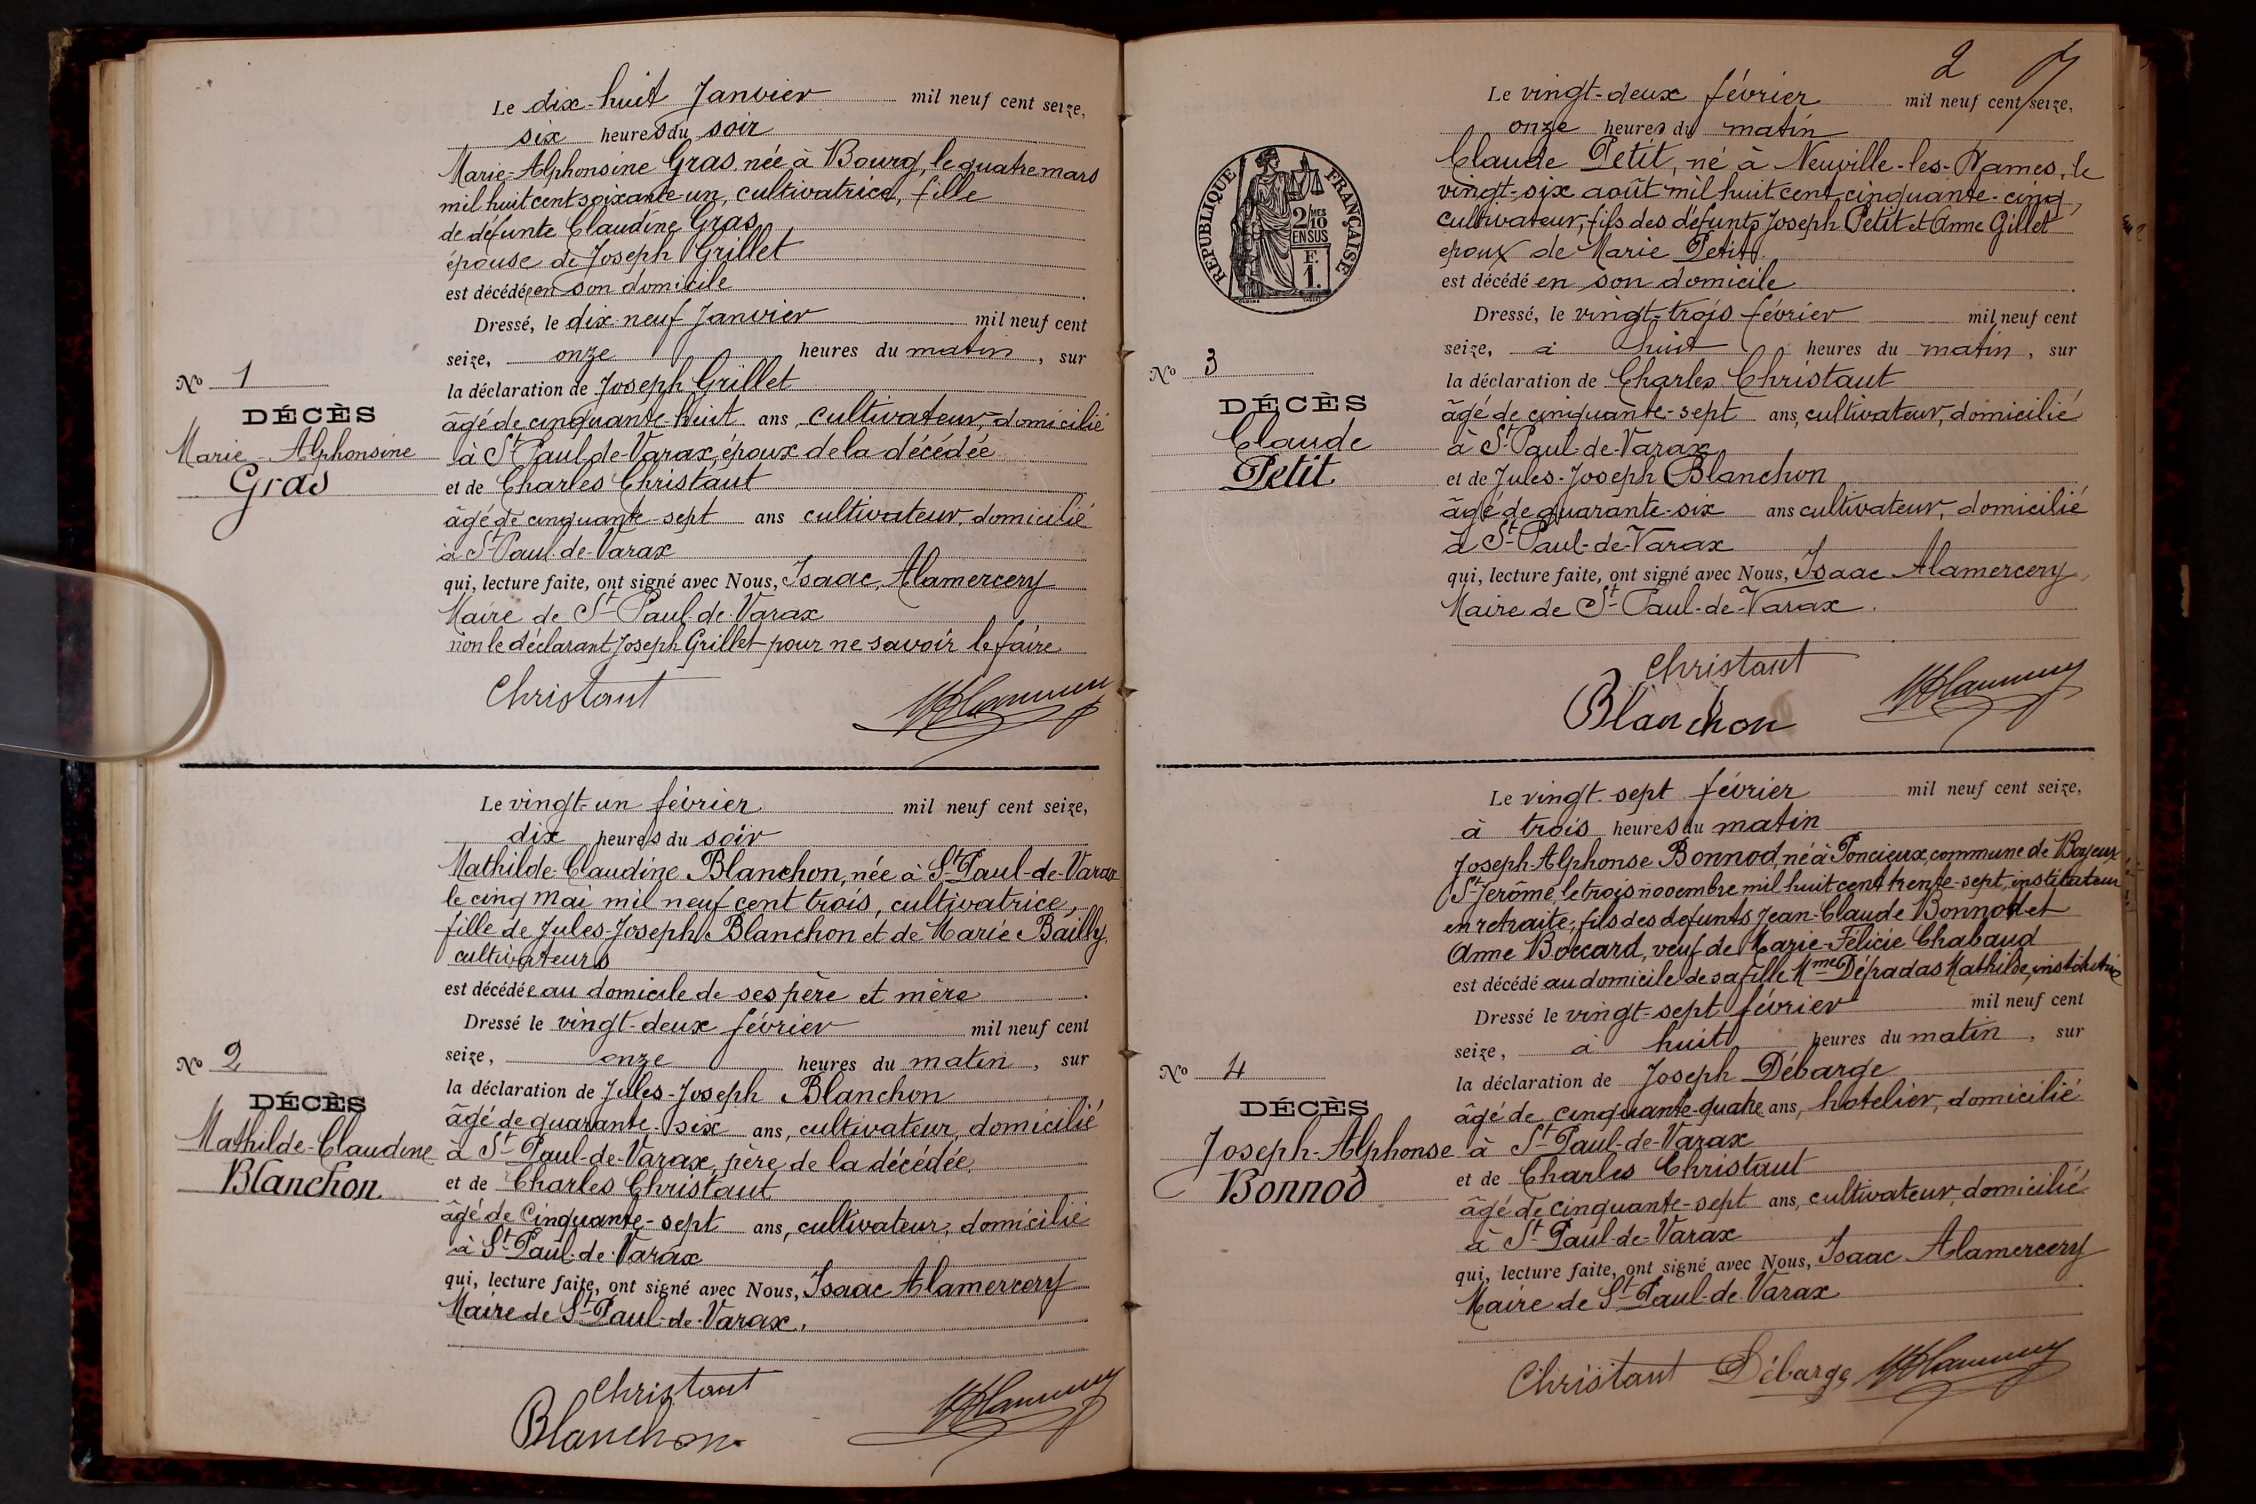 Le dix-huit Janvier mil neuf cent seize,
six heures du soir
Marie-Alphonsine Gras, née à Bourg, le quatre mars
mil huit cent soixante-un, cultivatrice, fille
de défunte Claudine Gras
épouse de Joseph Grillet
est décédée en son domicile
Dressé, le dix-neuf Janvier mil neuf cent
seize, onze heures du matin, sur
la déclaration de Joseph Grillet
âgé de cinquante-huit ans, cultivateur, domicilié
à St Paul-de-Varax, époux de la décédée
et de Charles Christaut
âgé de cinquante-sept ans cultivateur, domicilié
à St Paul-de-Varax
qui, lecture faite, ont signé avec Nous, Isaac Alamercery
Maire de St Paul-de-Varax
non le déclarant Joseph Grillet pour ne savoir le faire
Christaut
No 1
DÉCÈS
Marie-Alphonsine
Gras
Le vingt-un février mil neuf cent seize,
dix heures du soir
Mathilde-Claudine Blanchon, née à St Paul-de-Varax
le cinq mai mil neuf cent trois, cultivatrice,
fille de Jules-Joseph Blanchon et de Marie Bailly,
cultivateurs
est décédée au domicile de ses père et mère
Dressé le vingt-deux février mil neuf cent
seize, onze heures du matin, sur
la déclaration de Jules-Joseph Blanchon
âgé de quarante-six ans, cultivateur, domicilié
à St Paul-de-Varax, père de la décédée
et de Charles Christaut
âgé de Cinquante-sept ans, cultivateur, domicilié
à St Paul-de-Varax
qui, lecture faite, ont signé avec Nous, Isaac Alamercery
Maire de St Paul-de-Varax.
Christaut
Blanchon
No 2
DÉCÈS
Mathilde-Claudine
Blanchon
2
RÉPUBLIQUE FRANÇAISE
2/10 MES
EN SUS
F.
1.
Le vingt-deux février mil neuf cent seize,
onze heures du matin
Claude Petit, né à Neuville-les-Dames, le
vingt-six août mil huit cent cinquante-cinq,
cultivateur, fils des défunts Joseph Petit et Anne Gillet
epoux de Marie Petit
est décédé en son domicile
Dressé, le vingt-trois février mil neuf cent
seize, à huit heures du matin, sur
la déclaration de Charles Christaut
âgé de cinquante-sept ans, cultivateur, domicilié
à St Paul-de-Varax
et de Jules-Joseph Blanchon
âgé de quarante-six ans cultivateur, domicilié
à St Paul-de-Varax
qui, lecture faite, ont signé avec Nous, Isaac Alamercery,
Maire de St Paul-de-Varax.
Christaut
Blanchon
No 3
DÉCÈS
Claude
Petit
Le vingt-sept février mil neuf cent seize,
à trois heures du matin
Joseph-Alphonse Bonnod, né à Poncieux, commune de Boyeux
St Jerôme, le trois novembre mil huit cent trente-sept, instituteur
en retraite, fils des defunts Jean-Claude Bonnod et
Anne Boccard, veuf de Marie-Félicie Chabaud
est décédé au domicile de sa fille Mme Mathilde, institutrice
Dressé le vingt-sept février mil neuf cent
seize, à huit heures du matin, sur
la déclaration de Joseph Débarge
âgé de cinquante-quatre ans, hotelier, domicilié
à St Paul-de-Varax
et de Charles Christaut
âgé de cinquante-sept ans, cultivateur, domicilié
à St Paul-de-Varax
qui, lecture faite, ont signé avec Nous, Isaac Alamercery
Maire de St Paul-de-Varax
Christaut Débarge
No 4
DÉCÈS
Joseph-Alphonse
Bonnod